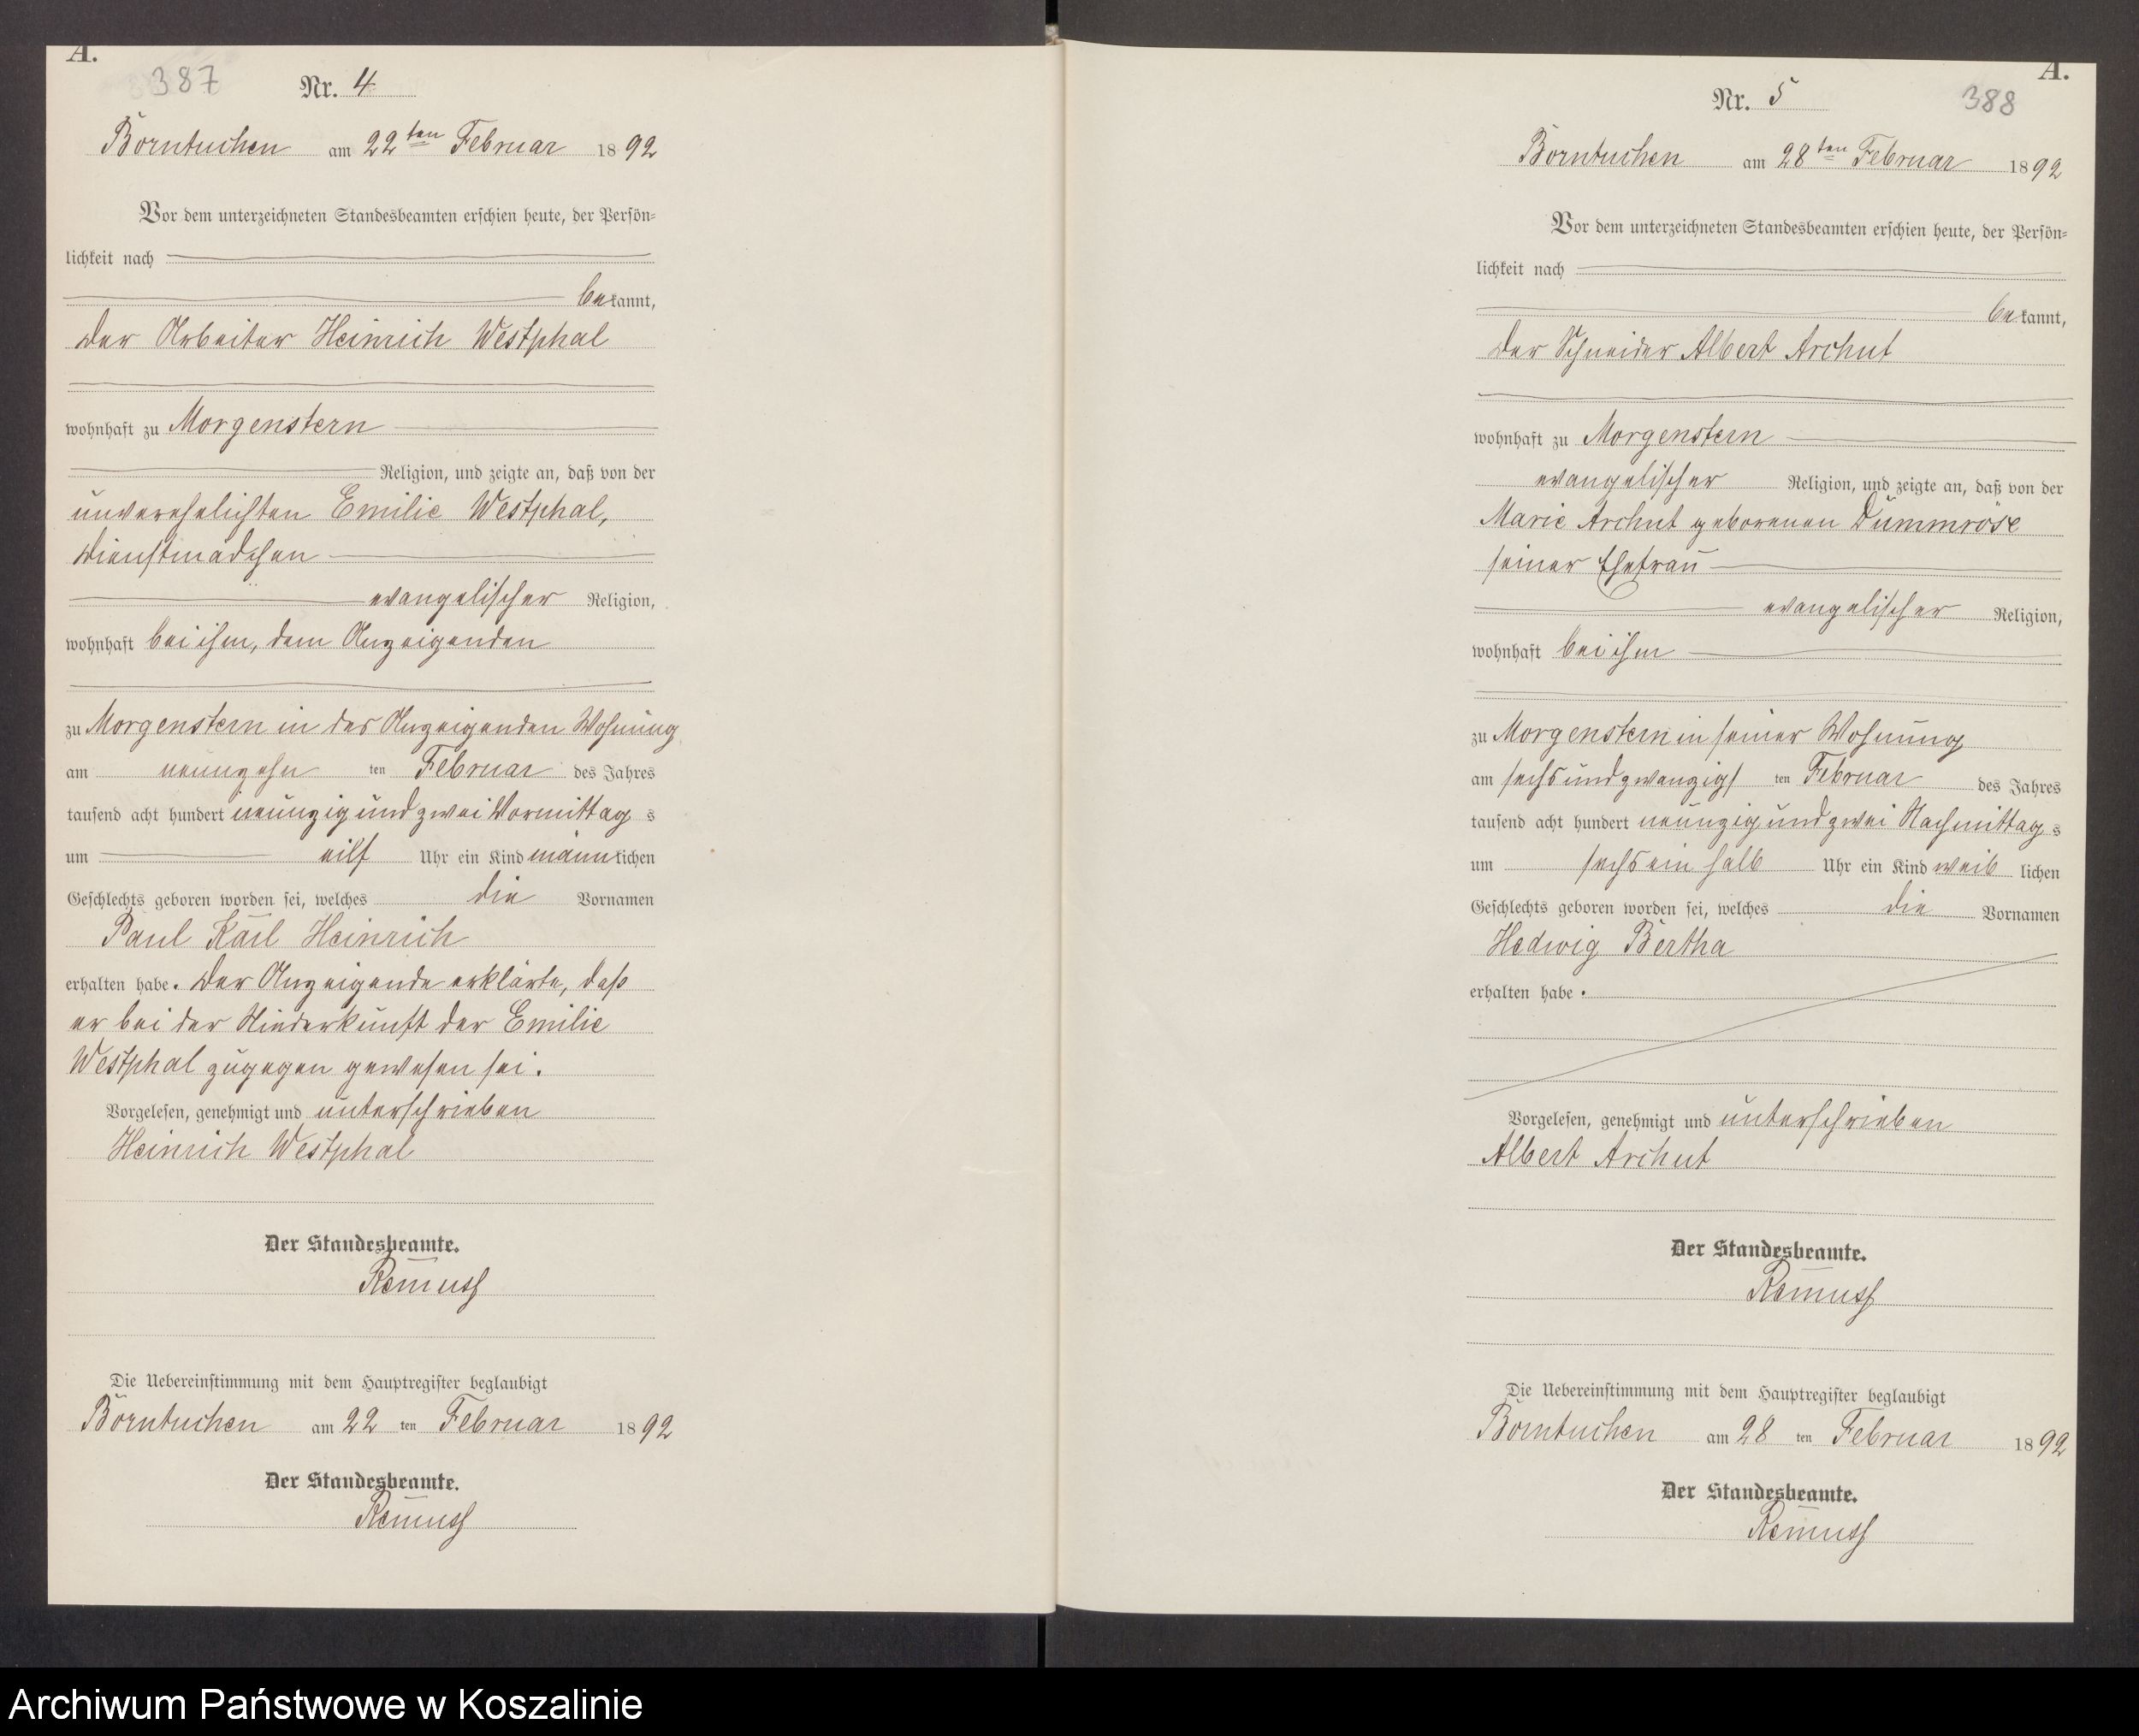 A.
387
Nr. 4
Borntuchen am 22ten Februar 1892
Vor dem unterzeichneten Standesbeamten erschien heute, der Persön=
lichkeit nach
bekannt,
der Arbeiter Heinrich Westphal
wohnhaft zu Morgenstern
Religion, und zeigte an, daß von der
unverehelichten Emilie Westphal,
Dienstmädchen
evangelischer Religion,
wohnhaft bei ihm, dem Anzeigenden
zu Morgenstern in des Anzeigenden Wohnung
am neunzehn ten Februar des Jahres
tausend acht hundert neunzig und zwei Vormittag s
um eilf Uhr ein Kind männlichen
Geschlechts geboren worden sei, welches die Vornamen
Paul Karl Heinrich
erhalten habe. Der Anzeigende erklärte, daß
er bei der Niederkunft der Emilie
Westphal zugegen gewesen sei.
Vorgelesen, genehmigt und unterschrieben
Heinrich Westphal
Der Standesbeamte.
Remuss
Die Uebereinstimmung mit dem Hauptregister beglaubigt
Borntuchen am 22 ten Februar 1892
Der Standesbeamte.
Remuss
A.
388
Nr. 5
Borntuchen am 28ten Februar 1892
Vor dem unterzeichneten Standesbeamten erschien heute, der Persön=
lichkeit nach
bekannt,
der Schneider Albert Archut
wohnhaft zu Morgenstern
evangelischer Religion, und zeigte an, daß von der
Marie Archut geborenen Dummröse
seiner Ehefrau
evangelischer Religion,
wohnhaft bei ihm
zu Morgenstern in seiner Wohnung
am sechsundzwanzigs ten Februar des Jahres
tausend acht hundert neunzig und zwei Nachmittag s
um sechs ein halb Uhr ein Kind weib lichen
Geschlechts geboren worden sei, welches die Vornamen
Hedwig Bertha
erhalten habe.
Vorgelesen, genehmigt und unterschrieben
Albert Archut
Der Standesbeamte.
Remuss
Die Uebereinstimmung mit dem Hauptregister beglaubigt
Borntuchen am 28 ten Februar 1892
Der Standesbeamte.
Remuss
Archiwum Państwowe w Koszalinie